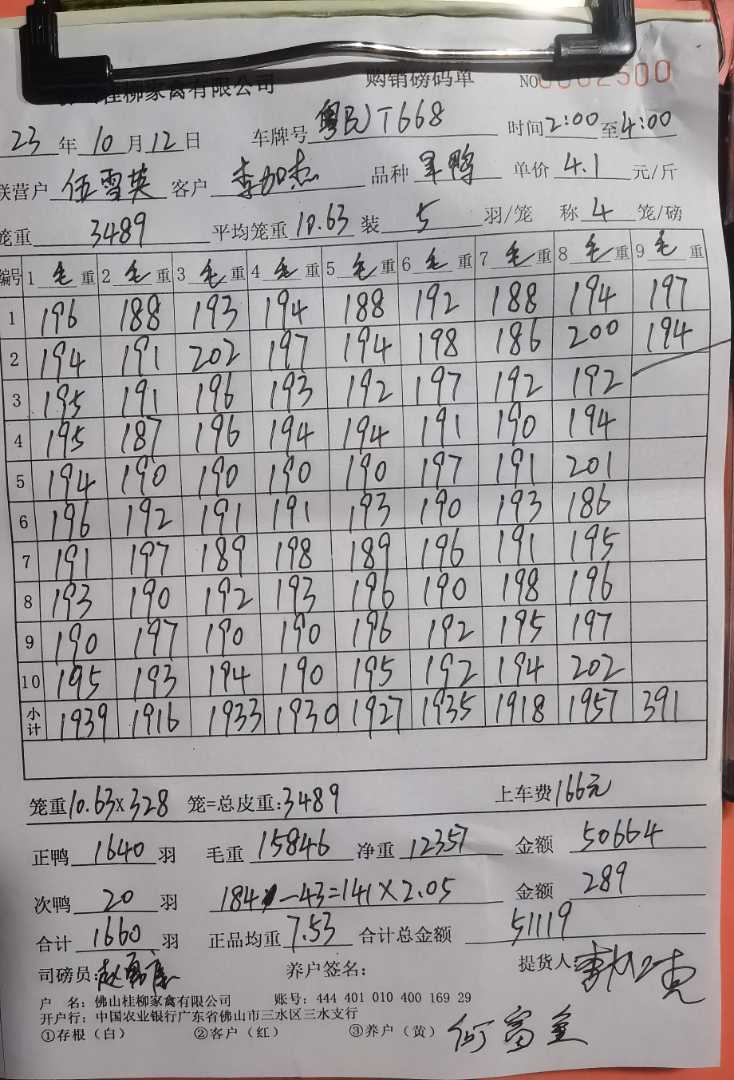 桂柳家禽有限公司 购销磅码单 NO0002500
23年10月12日 车牌号粤BJT668 时间2:00至4:00
联营户伍雪英 客户李加杰 品种单鸭 单价4.1元/斤
笼重3489 平均笼重10.63 装5羽/笼 称4笼/磅
编号 1毛重 2毛重 3毛重 4毛重 5毛重 6毛重 7毛重 8毛重 9毛重
1 196 188 193 194 188 192 188 194 197
2 194 191 202 197 194 198 186 200 194
3 195 191 196 193 192 197 192 192
4 195 187 196 194 194 191 190 194
5 194 190 190 190 190 197 191 201
6 196 192 191 191 193 190 193 186
7 191 197 189 198 189 196 191 195
8 193 190 192 193 196 190 198 196
9 190 197 190 190 196 192 195 197
10 195 193 194 190 195 192 194 202
小计 1939 1916 1933 1930 1927 1935 1918 1957 391
笼重10.63×328 笼=总皮重:3489 上车费166元
正鸭1640羽 毛重15846 净重12357 金额50664
次鸭20羽 184-43=141×2.05 金额289
合计1660羽 正品均重7.53 合计总金额51119
司磅员: 养户签名: 提货人:
户 名:佛山桂柳家禽有限公司 账号:444 401 010 400 169 29
开户行:中国农业银行广东省佛山市三水区三水支行
①存根(白) ②客户(红) ③养户(黄) 何富全